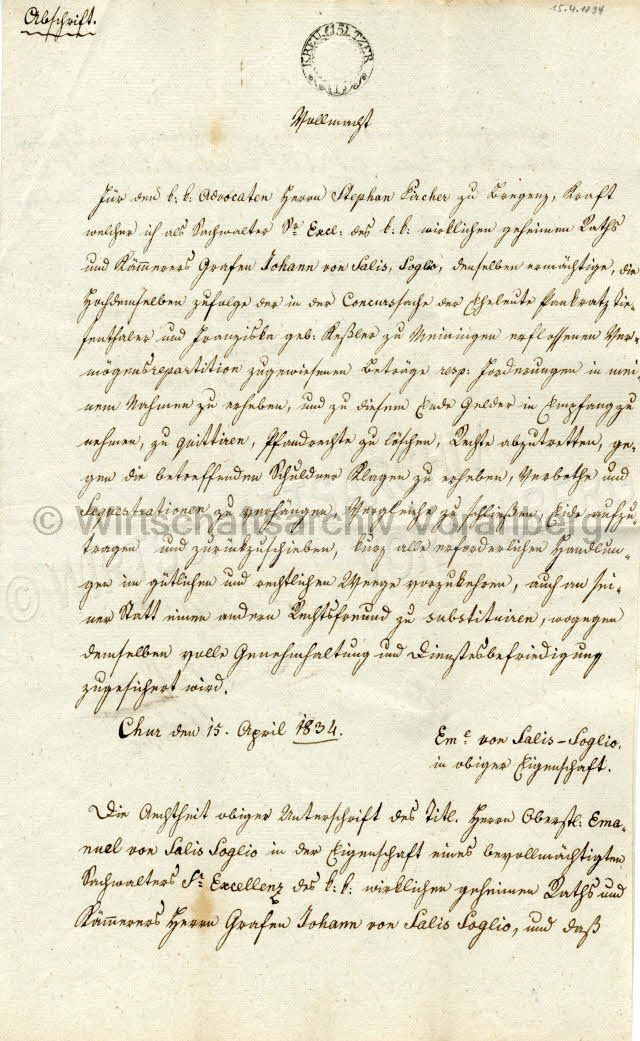 Abschrift.
15.4.1834
15 KREUTZER
Vollmacht
Für den k: k: Advocaten Herrn Stephan Pircher zu Bregenz, Kraft
welcher ich als Sachwalter Sr. Excl: des k: k: wirklichen geheimen Raths
und Kämerers Grafen Johann von Salis, Soglio, denselben ermächtige, die
Hochdemselben zufolge der in der Concurssache der Eheleute Pankratz Tie-
fenthaler und Franziska geb: Keßler zu Meiningen erflossenen Ver-
mögensrepartition zugewiesenen Beträge resp: Forderungen in mei-
nem Nahmen zu erheben, und zu diesem Ende Gelder in Empfang zu
nehmen, zu quittiren, Pfandrechte zu löschen, Rechte abzutretten, ge-
gen die betreffenden Schuldner Klagen zu erheben, Verbothe und
Sequestrationen zu verhängen, Vergleiche zu schließen, Eide aufzu-
tragen und zurückzuschieben, kurz alle erforderlichen Handlun-
gen im gütlichen und rechtlichen Weege vorzukehren, auch an sei-
ner Statt einen andern Rechtsfreund zu substituiren, wogegen
demselben volle Genehmhaltung und Dienstesbefriedigung
zugesichert wird.
Chur den 15. April 1834.
Eme von Salis-Soglio,
in obiger Eigenschaft.
Die Aechtheit obiger Unterschrift des Titl. Herrn Oberstl: Ema-
nuel von Salis Soglio in der Eigenschaft eines bevollmächtigten
Sachwalters Sr. Excellenz des k: k: wirklichen geheimen Raths und
Kämerers Herrn Grafen Johann von Salis Soglio, und daß
© Wirtschaftsarchiv Vorarlberg